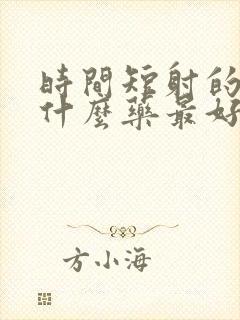 時間短射的
什麼藥最好
方小海